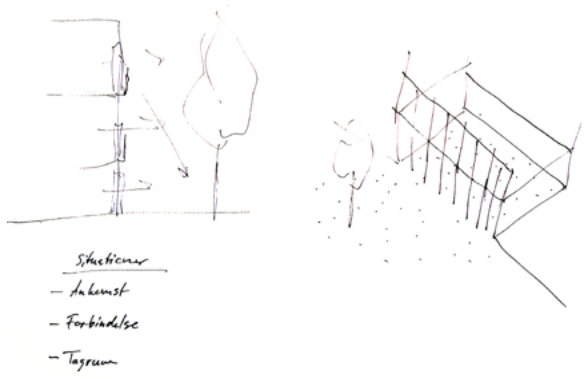 Situationer
- Ankomst
- Forbindelse
- Tagrum